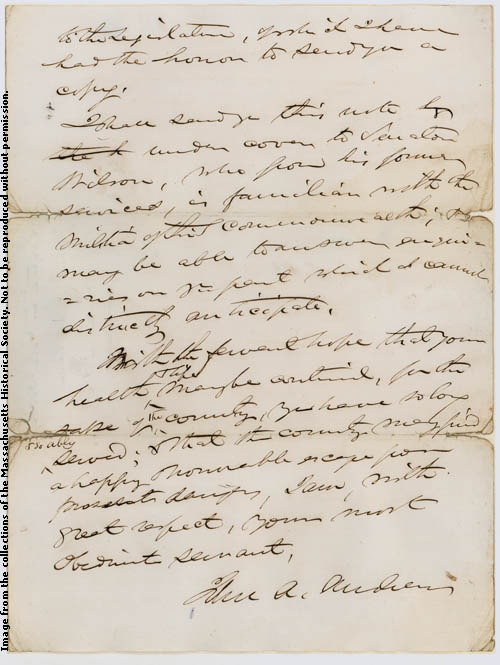 to the Legislature, of which I have
had the honor to send you a
copy.
I shall send you this note by
under cover to Senator
Wilson, who from his former
services, is familiar with the
Militia of this Commonwealth; &
may be able to answer enqui-
=ries on yr part which I cannot
distinctly anticipate.
With the fervent hope that your
health may be continued, for the
sake of the country, you have so long
& so ably
served; & that the country may find
a happy & honorable escape from
present dangers, I am, with
great respect, your most
Obedient servant,
John A. Andrew
Image from the collections of the Massachusetts Historical Society. Not to be reproduced without permission.